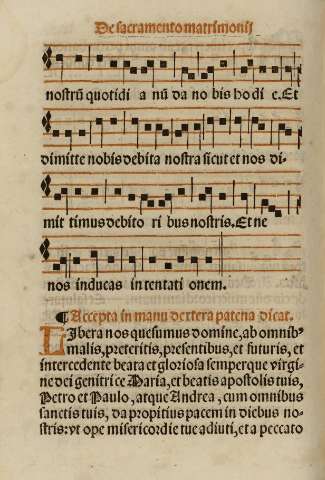 De sacramento matrimonij
nostrũ quotidi a nũ da no bis ho di e. Et
dimitte nobis debita nostra sicut et nos di-
mit timus debito ri bus nostris. Et ne
nos inducas in tentati onem.
¶ Accepta in manu dextera patena dicat.
LIbera nos quesumus domine, ab omnib⁹
malis, preteritis, presentibus, et futuris, et
intercedente beata et gloriosa semperque virgi-
ne dei genitrice Maria, et beatis apostolis tuis,
Petro et Paulo, atque Andrea, cum omnibus
sanctis tuis, da propitius pacem in diebus no-
stris: vt ope misericordie tue adiuti, et a peccato